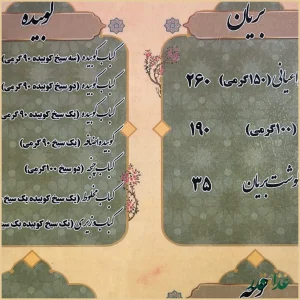 بریان
اعیانی (۱۵۰گرمی) ۲۶۰
(۱۰۰گرمی) ۱۹۰
گوشت بریان ۳۵
کوبیده
کباب کوبیده (سه سیخ کوبیده ۹۰گرمی)
کباب کوبیده (دو سیخ کوبیده ۹۰گرمی)
کباب کوبیده (یک سیخ کوبیده ۹۰گرمی)
کوبیده اضافه (یک سیخ ۹۰گرمی)
کباب لقمه (دو سیخ ۱۰۰گرمی)
کباب مخلوط (یک سیخ کوبیده یک سیخ
کباب وزیری (یک سیخ کوبیده یک سیخ
غذا